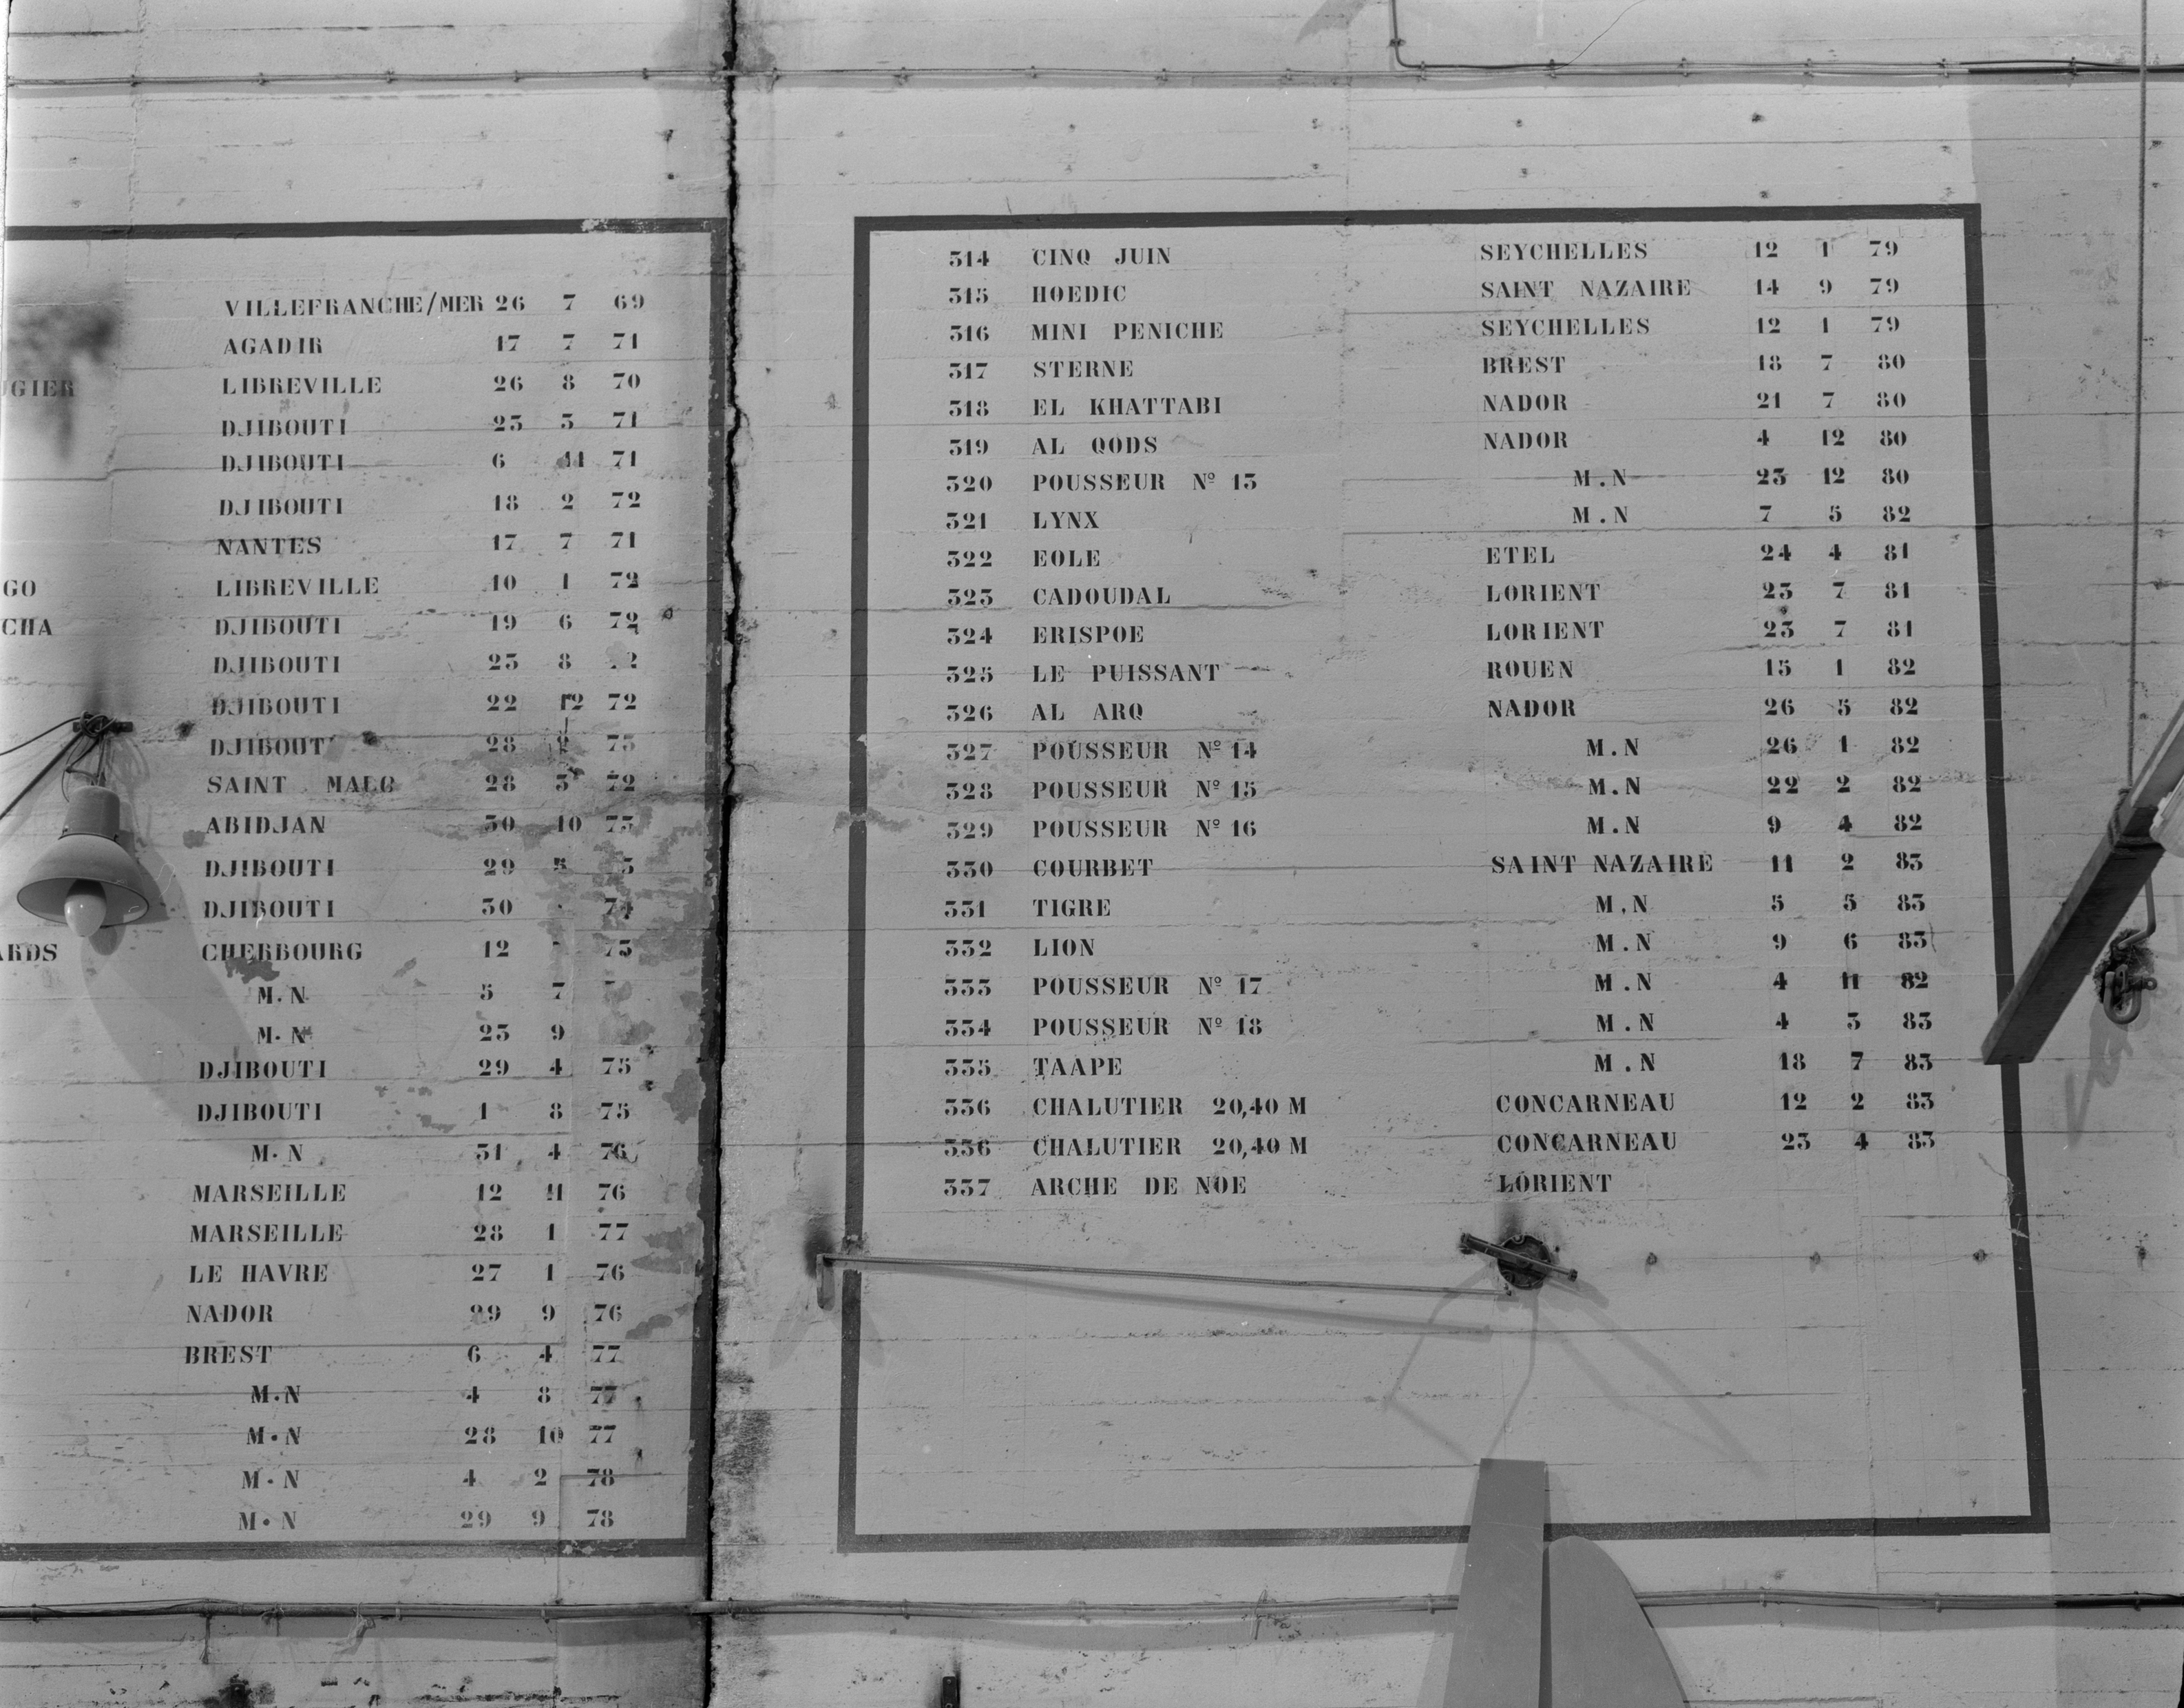 VILLEFRANCHE/MER 26 7 69
AGADIR 17 7 71
UGIER LIBREVILLE 26 8 70
DJIBOUTI 23 3 71
DJIBOUTI 6 11 71
DJIBOUTI 18 2 72
NANTES 17 7 71
GO LIBREVILLE 10 1 72
CHA DJIBOUTI 19 6 72
DJIBOUTI 23 8 2
DJIBOUTI 22 12 72
DJIBOUT 28 73
SAINT MALO 28 3 72
ABIDJAN 30 10 73
DJIBOUTI 29 5 3
DJIBOUTI 30 74
ARDS CHERBOURG 12 73
M.N 5 7
M.N 23 9
DJIBOUTI 29 4 75
DJIBOUTI 1 8 75
M.N 31 4 76
MARSEILLE 12 11 76
MARSEILLE 28 1 77
LE HAVRE 27 1 76
NADOR 29 9 76
BREST 6 4 77
M.N 4 8 77
M.N 28 10 77
M.N 4 2 78
M.N 29 9 78
314 CINQ JUIN SEYCHELLES 12 1 79
315 HOEDIC SAINT NAZAIRE 14 9 79
316 MINI PENICHE SEYCHELLES 12 1 79
317 STERNE BREST 18 7 80
318 EL KHATTABI NADOR 21 7 80
319 AL QODS NADOR 4 12 80
320 POUSSEUR Nº 13 M.N 23 12 80
321 LYNX M.N 7 5 82
322 EOLE ETEL 24 4 81
323 CADOUDAL LORIENT 23 7 81
324 ERISPOE LORIENT 23 7 81
325 LE PUISSANT ROUEN 15 1 82
326 AL ARQ NADOR 26 5 82
327 POUSSEUR Nº 14 M.N 26 1 82
328 POUSSEUR Nº 15 M.N 22 2 82
329 POUSSEUR Nº 16 M.N 9 4 82
330 COURBET SAINT NAZAIRE 11 2 83
331 TIGRE M.N 5 5 83
332 LION M.N 9 6 83
333 POUSSEUR Nº 17 M.N 4 11 82
334 POUSSEUR Nº 18 M.N 4 3 83
335 TAAPE M.N 18 7 83
336 CHALUTIER 20,40 M CONCARNEAU 12 2 83
336 CHALUTIER 20,40 M CONCARNEAU 23 4 83
337 ARCHE DE NOE LORIENT